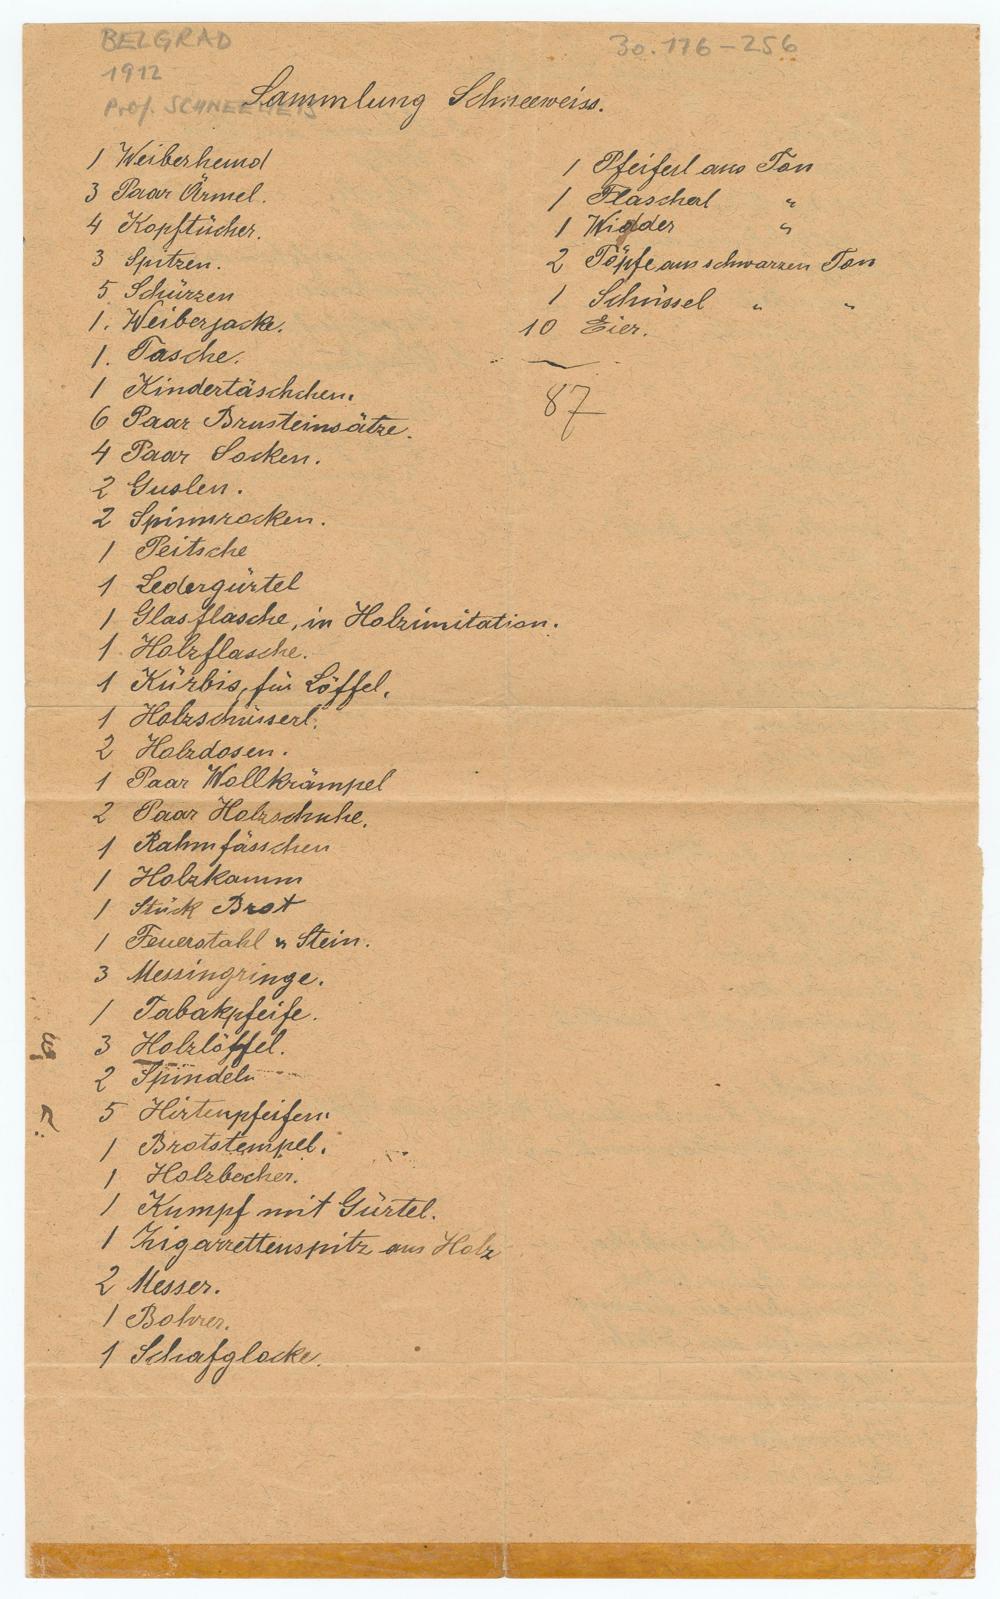 BELGRAD
1912
Prof. SCHNEEWEIS
30.176-256
Sammlung Schneeweiss.
1 Weiberhemd
3 Paar Ärmel.
4 Kopftücher.
3 Spitzen.
5 Schürzen
1. Weiberjacke.
1. Tasche.
1 Kindertäschchen.
6 Paar Brusteinsätze.
4 Paar Socken.
2 Guslen.
2 Spinnrocken.
1 Peitsche
1 Ledergürtel
1 Glasflasche, in Holzimitation.
1 Holzflasche.
1 Kürbis, für Löffel.
1 Holzschüsserl.
2 Holzdosen.
1 Paar Wollkrämpel
2 Paar Holzschuhe.
1 Rahmfässchen
1 Holzkamm
1 Stück Brot
1 Feuerstahl u Stein.
3 Messingringe.
1 Tabakpfeife.
3 Holzlöffel.
2 Spindeln
5 Hirtenpfeifen.
1 Brotstempel.
1 Holzbecher.
1 Kumpf mit Gürtel.
1 Zigarrettenspitz aus Holz
2 Messer.
1 Bohrer.
1 Schafglocke.
1 Pfeiferl aus Ton
1 Flascherl "
1 Widder "
2 Töpfe aus schwarzen Ton
1 Schüssel " "
10 Eier.
87